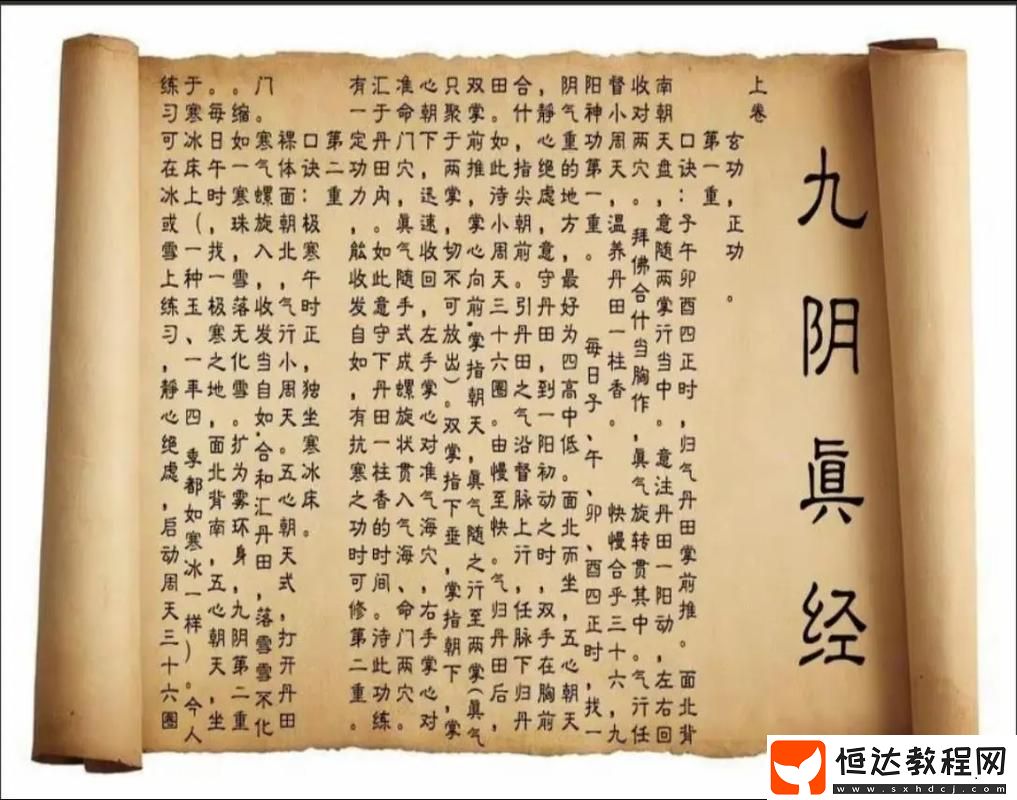 九阴眞经
上卷
玄功，正功。
第一重
口诀：子午卯酉四正时，归气丹田掌前推。面北背
南朝天盘，意随两掌行当中。意注丹田一阳动，左右回
收对两穴。拜佛合什当胸作，眞气旋转贯其中。气行任
督小周天，温养丹田一柱香。快慢合乎三十六，九
阳神功第一重。每日子、午、卯、酉四正时，找一
阴气重的地方，最好为四高中低。面北而坐，五心朝天
，静心绝虑，意守丹田，到一阳初动之时，双手在胸前
合什，指尖朝前。引丹田之气沿督脉上行，任脉下归丹
田。如此待小周天三十六圈。由慢至快。气归丹田后，
双掌前推，掌心向前.掌指朝天，眞气随之行至两掌（眞气
只聚于两掌，切不可放出）。双掌指下垂，掌指朝下，掌
心朝下，迅速收回，左手掌心对准气海穴，右手掌心对
准命门穴，眞气随手式成螺旋状贯入气海、命门两穴。
汇于丹田内。如此意守下丹田一柱香的时间。待此功练
有一定功力，能收发自如，有抗寒之功时可修第二重。
第二重
口诀：极寒午时正，独坐寒冰床。
裸体面朝北，气行小周天。五心朝天式，打开丹田
门。寒气螺旋入，收发当自如.合和汇丹田，落雪雪不化
。缩如一寒珠，雪落无化雪。扩为雾环身，九阴第二重
。每日午时，找一极寒之地，面北背南，五心朝天，坐
于寒冰床上（一种玉、一年四季都如寒冰一样）。今人
练习可在冰或雪上练习，静心绝虑，启动周天三十六圈
恒达教程网
www.sxhdcj.com